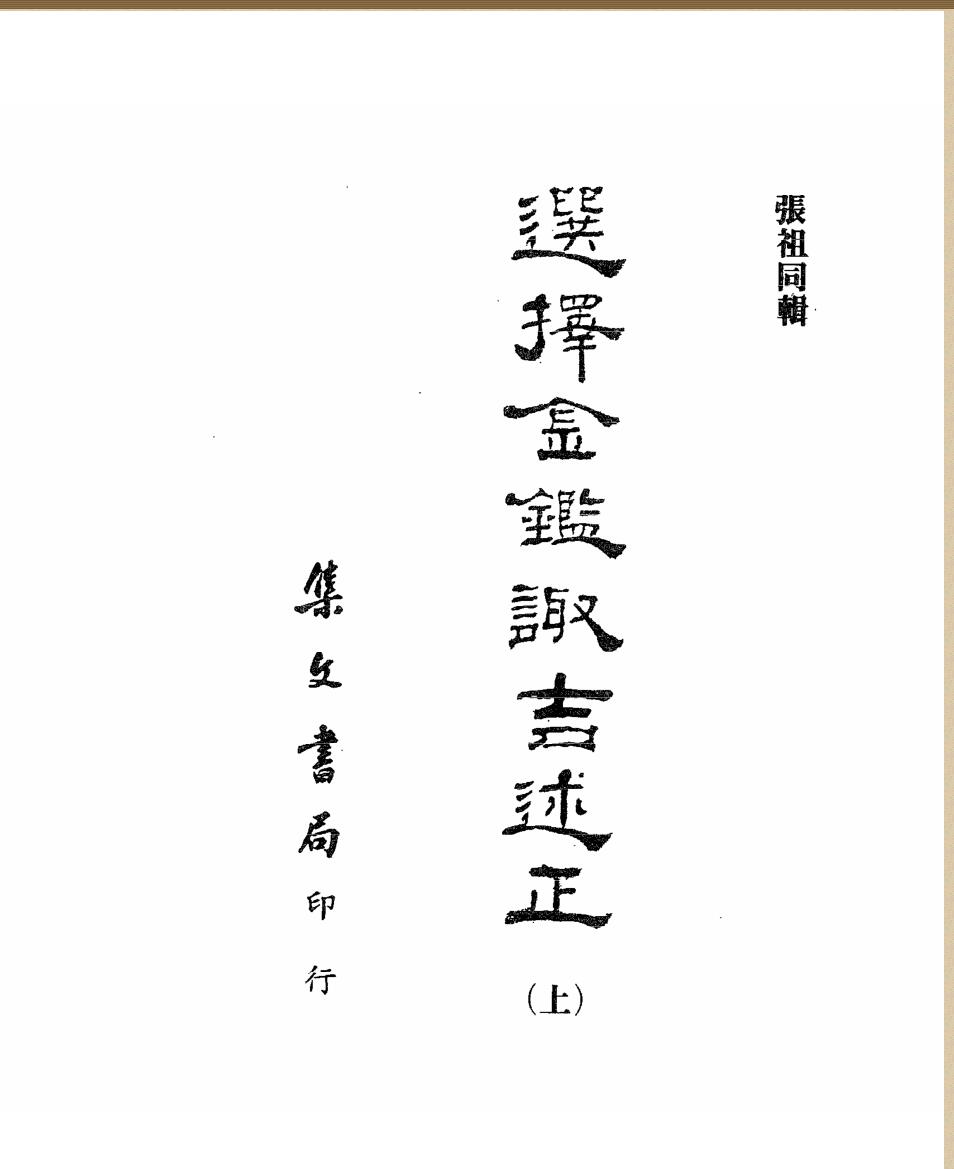 張祖同輯
選擇金鑑諏吉述正
(上)
集文書局印行